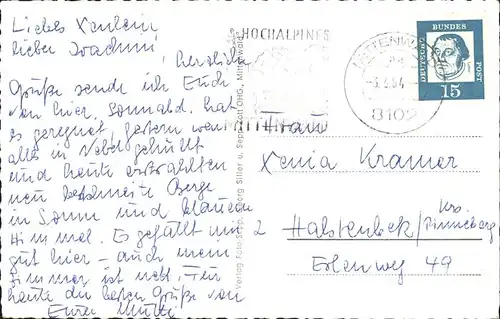 Liebes Xenilein,
lieber Joachim,
herzliche
Grüße sende ich Euch
von hier. Sonnabd. hat
es geregnet, gestern war
alles in Nebel gehüllt
und heute erstrahlten
neu beschneite Berge
in Sonne und blauem
Himmel. Es gefällt mir
gut hier – auch mein
Zimmer ist nett. Für
heute die besten Grüße von
Eurer Mutti
HOCHALPINES
MITTENWALD
8102
DEUTSCHE
BUNDES
POST
15
Frau
Xenia Kramer
2 Halstenbek/Krs. Pinneberg
Erlenweg 49